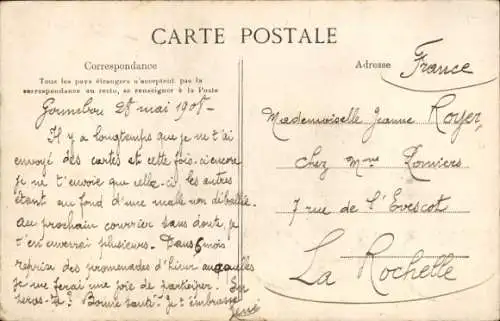 CARTE POSTALE
Correspondance
Tous les pays étrangers n'acceptent pas la
correspondance au recto, se renseigner à la Poste
28 mai 1905-
Il y a longtemps que je ne t'ai
envoyé des cartes et cette fois-ci encore
je ne t'envoie que celle-ci, les autres
étant au fond d'une malle non déballée.
Au prochain courrier sans doute, je
t'en enverrai plusieurs. Dans 6 mois
reprise des promenades d'hiver auxquelles
je me ferai une joie de participer.
Bonne santé. Je t'embrasse
Adresse
France
Mademoiselle Jeanne Royer,
chez Mme
7 rue de l'Evescot
La Rochelle